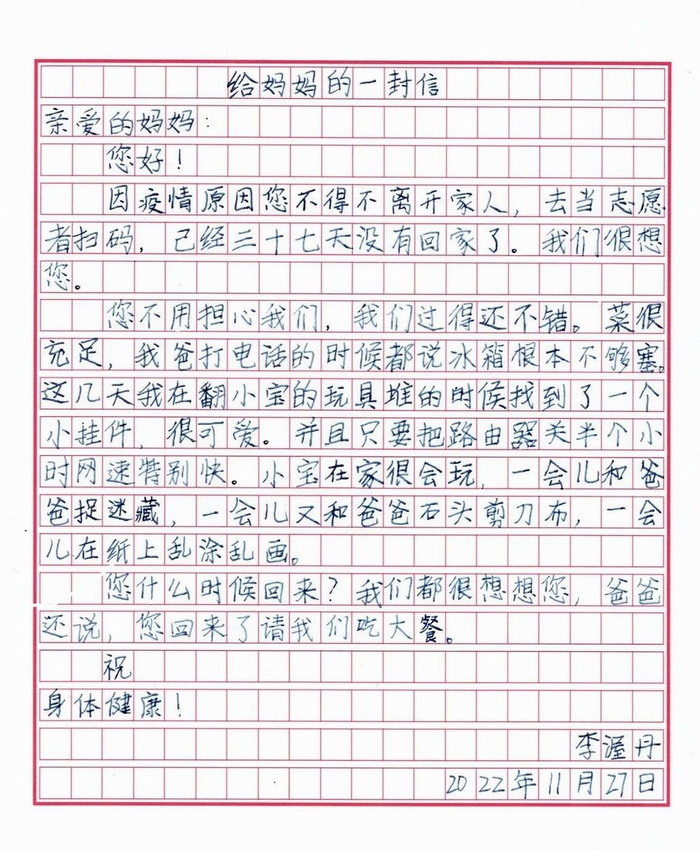 给妈妈的一封信
亲爱的妈妈：
您好！
因疫情原因您不得不离开家人，去当志愿
者扫码，已经三十七天没有回家了。我们很想
您。
您不用担心我们，我们过得还不错。菜很
充足，我爸打电话的时候都说冰箱根本不够塞。
这几天我在翻小宝的玩具堆的时候找到了一个
小挂件，很可爱。并且只要把路由器关半个小
时网速特别快。小宝在家很会玩，一会儿和爸
爸捉迷藏，一会儿又和爸爸石头剪刀布，一会
儿在纸上乱涂乱画。
您什么时候回来？我们都很想想您，爸爸
还说，您回来了请我们吃大餐。
祝
身体健康！
李渥丹
2022年11月27日